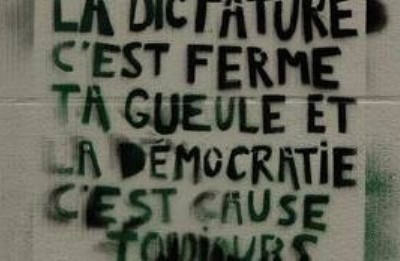 LA DICTATURE
C'EST FERME
TA GUEULE ET
LA DÉMOCRATIE
C'EST CAUSE
TOUJOURS